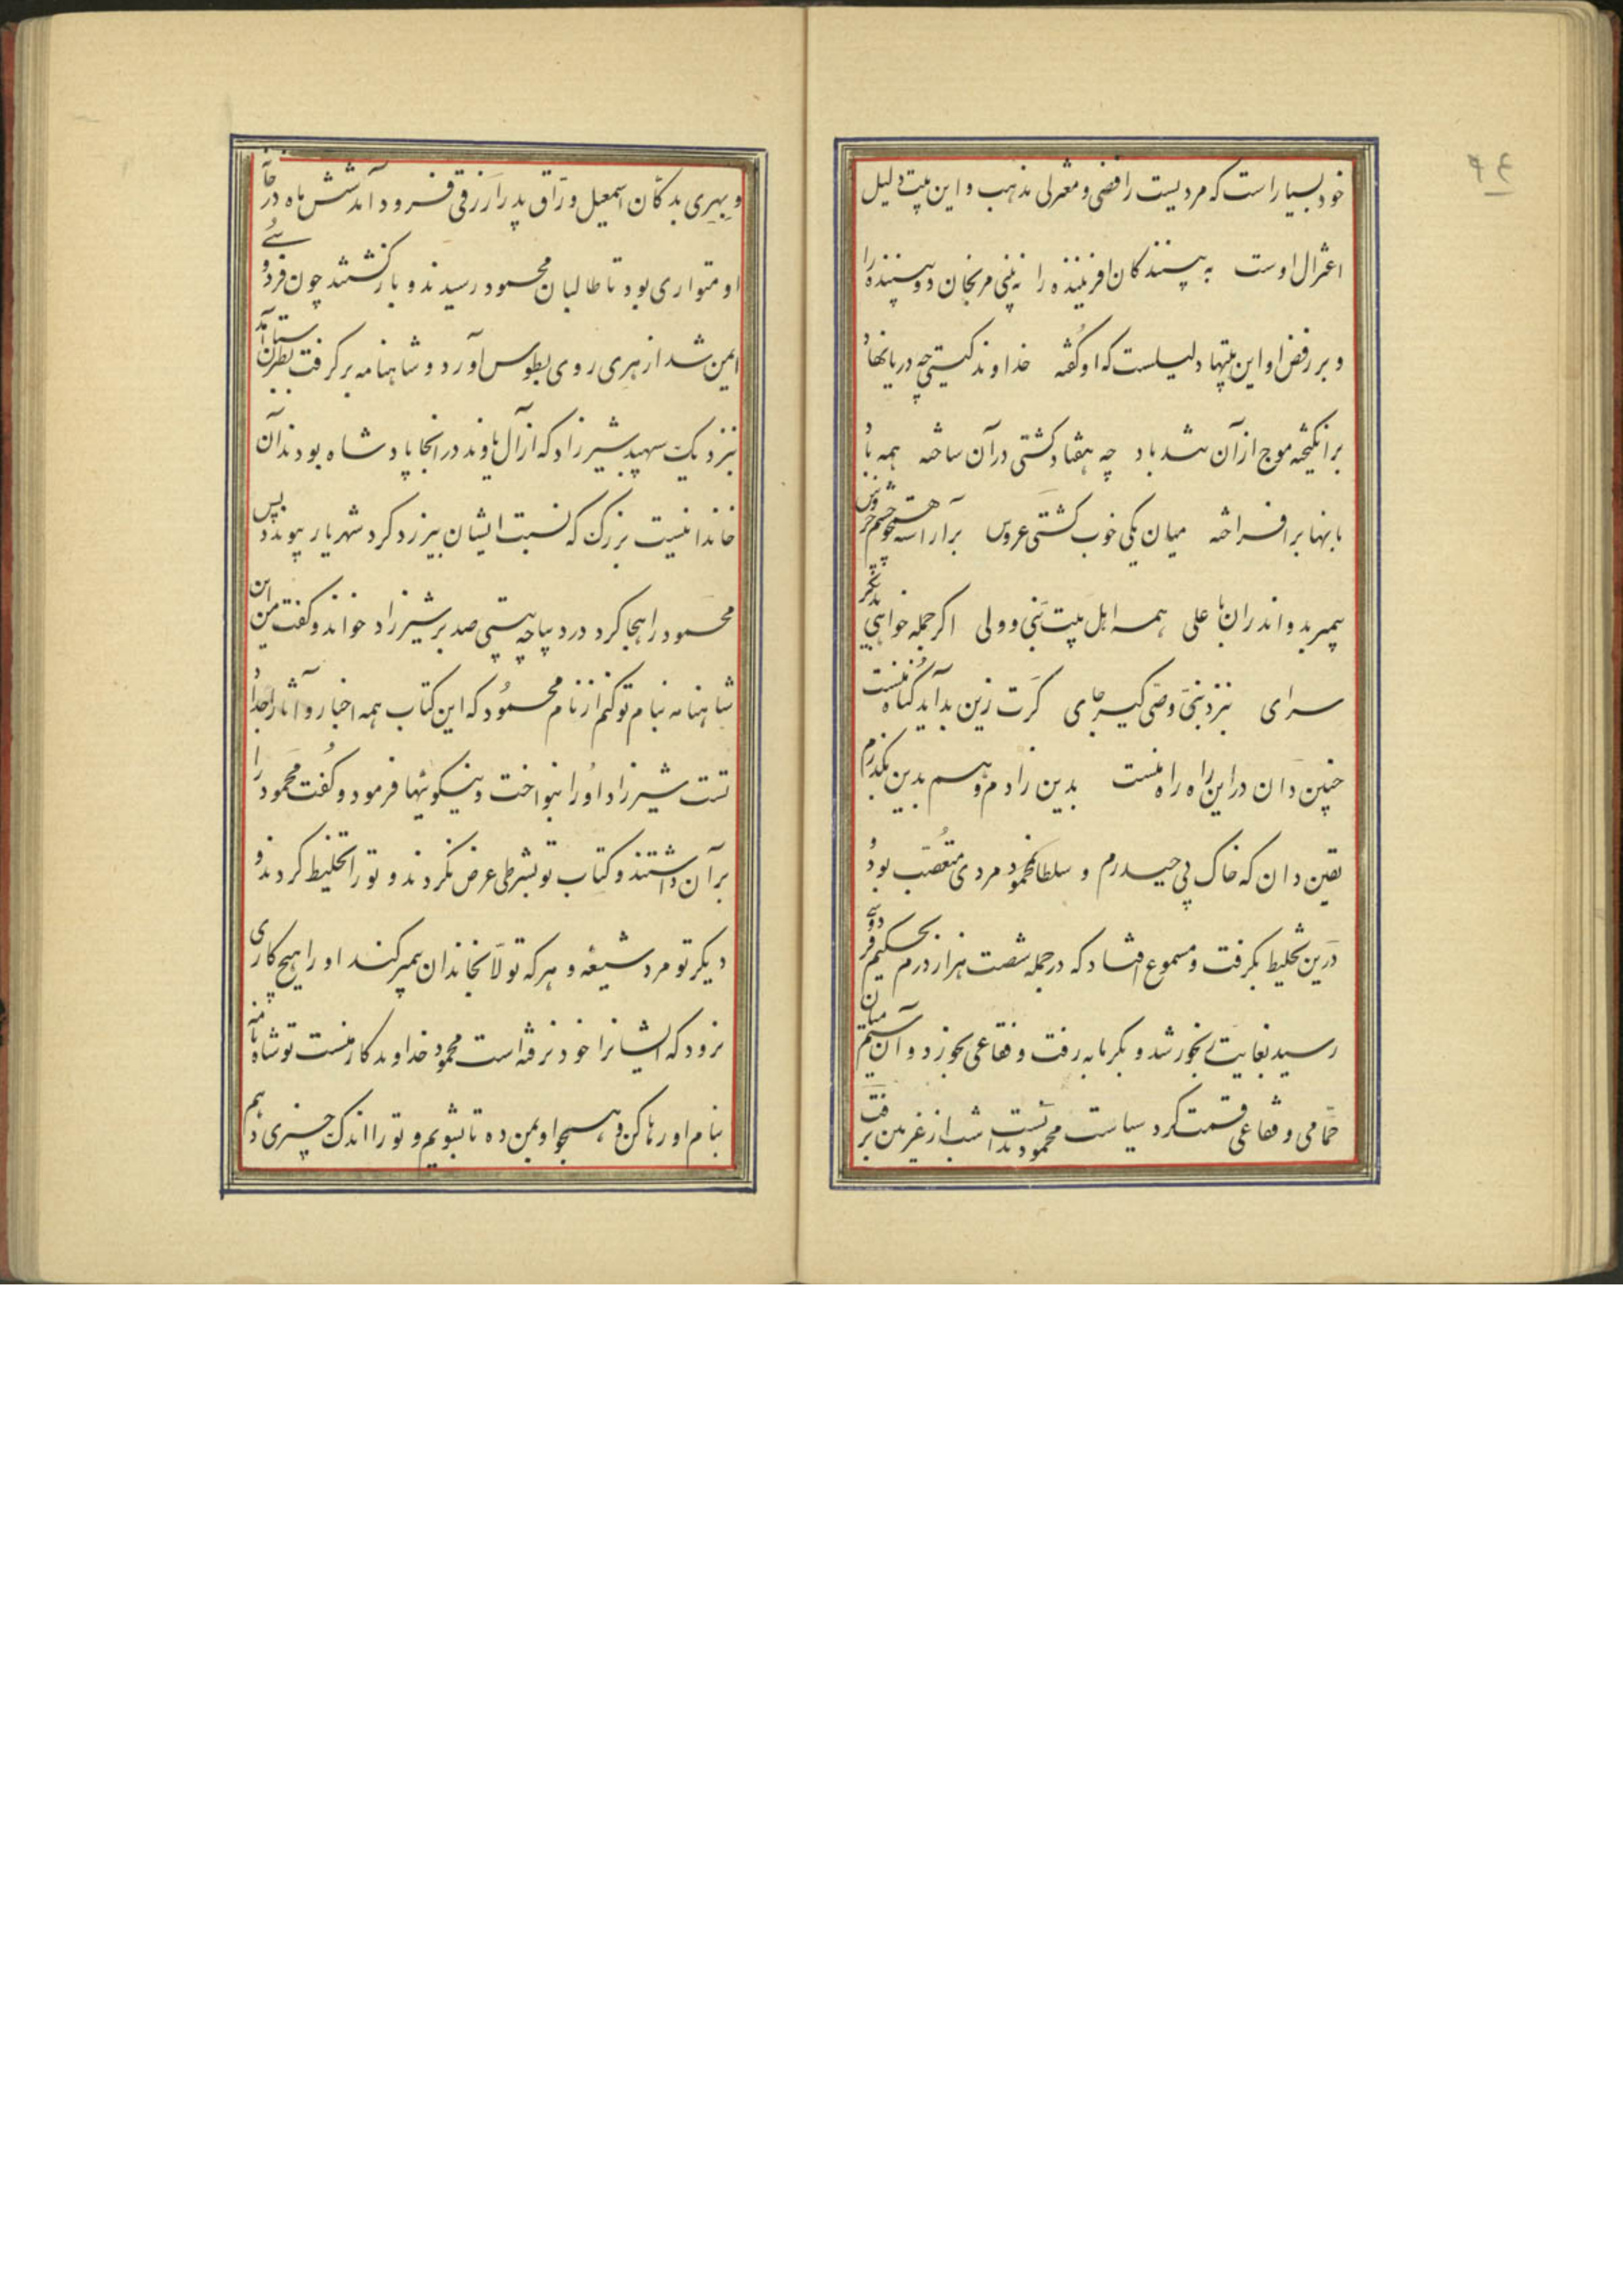 ۴۶
خود بسیار است که مردیست رافضی و معتزلی مذهب و این بیت دلیل
اعتزال اوست به بینندگان افریننده را نه بینی مرنجان دو بیننده را
و بر رفض او این بیتها دلیلست که او گفته خداوند گیتی چه دریا نهاد
برانگیخته موج از آن تندباد چه هفتاد کشتی در آن ساخته همه باد
بانها برافراخته میان یکی خوب کشتی عروس برآراسته همچو چشم خروس
پیمبر بدو اندران با علی همه اهل بیت نبی و ولی اگر جمله خواهی بدیگر
سرای بنزد نبی و وصی گیر جای گرت زین بد آید گناه منست
چنین دان در این راه راه منست بدین زادم و هم بدین بگذرم
یقین دان که خاک پی حیدرم و سلطان محمود مردی متعصب بود
درین تخلیط بگرفت و مسموع افتاد که در جمله شصت هزار درم بحکیم فردوسی
رسید بغایت رنجور شد و بگرمابه رفت و فقاعی بخورد و آن سیم میان
حمامی و فقاعی قسمت کرد سیاست محمود دانست شب از غزنین برفت
و بهری بدکان اسمعیل وراق پدر ازرقی فرود آمد شش ماه در خانه
او متواری بود تا طالبان محمود رسیدند و بازگشتند چون فردوسی
ایمن شد از هری روی بطوس آورد و شاهنامه برگرفت بطبرستان آمد
بنزدیک سپهبد شیرزاد که از آل باوند در انجا پادشاه بودند آن
خاندانیست بزرگ که نسبت ایشان بیزدگرد شهریار پیوندد پس
محمود را هجا کرد در دیباچه بیتی صد بر شیرزاد خواند و گفت من این
شاهنامه بنام تو کنم از نام محمود که این کتاب همه اخبار و آثار اجداد
تست شیرزاد او را بنواخت و نیکوئیها فرمود و گفت محمود را
بر آن داشتند و کتاب تو بشرطی عرض نکردند و تو را تخلیط کردند و
دیگر تو مرد شیعهٔ و هر که تولا بخاندان پیمبر کند او را هیچ کاری
نرود که ایشانرا خود نرفته است محمود خداوندگار منست تو شاهنامه
بنام او رها کن و هجو او بمن ده تا بشویم و تو را اندک چیزی دهم